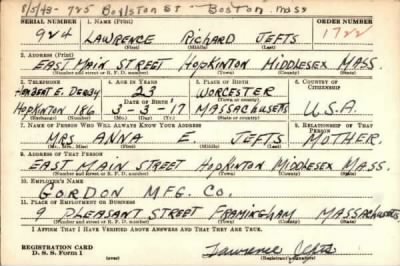 8/5/43 - 725 Boylston St - Boston, Mass
SERIAL NUMBER 1. NAME (Print) ORDER NUMBER
924 LAWRENCE RICHARD JEFTS 1722
(First) (Middle) (Last)
2. ADDRESS (Print)
EAST MAIN STREET HOPKINTON MIDDLESEX MASS.
(Number and street or R. F. D. number) (Town) (County) (State)
3. TELEPHONE 4. AGE IN YEARS 5. PLACE OF BIRTH 6. COUNTRY OF CITIZENSHIP
HERBERT E. DERBY 23 WORCESTER
DATE OF BIRTH (Town or county)
HOPKINTON 186 3-3-17 MASSACHUSETTS U.S.A.
(Exchange) (Number) (Mo.) (Day) (Yr.) (State or country)
7. NAME OF PERSON WHO WILL ALWAYS KNOW YOUR ADDRESS 8. RELATIONSHIP OF THAT PERSON
MRS ANNA E. JEFTS MOTHER.
(Mr., Mrs., Miss) (First) (Middle) (Last)
9. ADDRESS OF THAT PERSON
EAST MAIN STREET HOPKINTON MIDDLESEX MASS.
(Number and street or R. F. D. number) (Town) (County) (State)
10. EMPLOYER'S NAME
GORDON MFG. CO.
11. PLACE OF EMPLOYMENT OR BUSINESS
9 PLEASANT STREET FRAMINGHAM MASSACHUSETTS
(Number and street or R. F. D. number) (Town) (County) (State)
I AFFIRM THAT I HAVE VERIFIED ABOVE ANSWERS AND THAT THEY ARE TRUE.
REGISTRATION CARD
D. S. S. Form 1 Lawrence Jefts
(Registrant's signature)